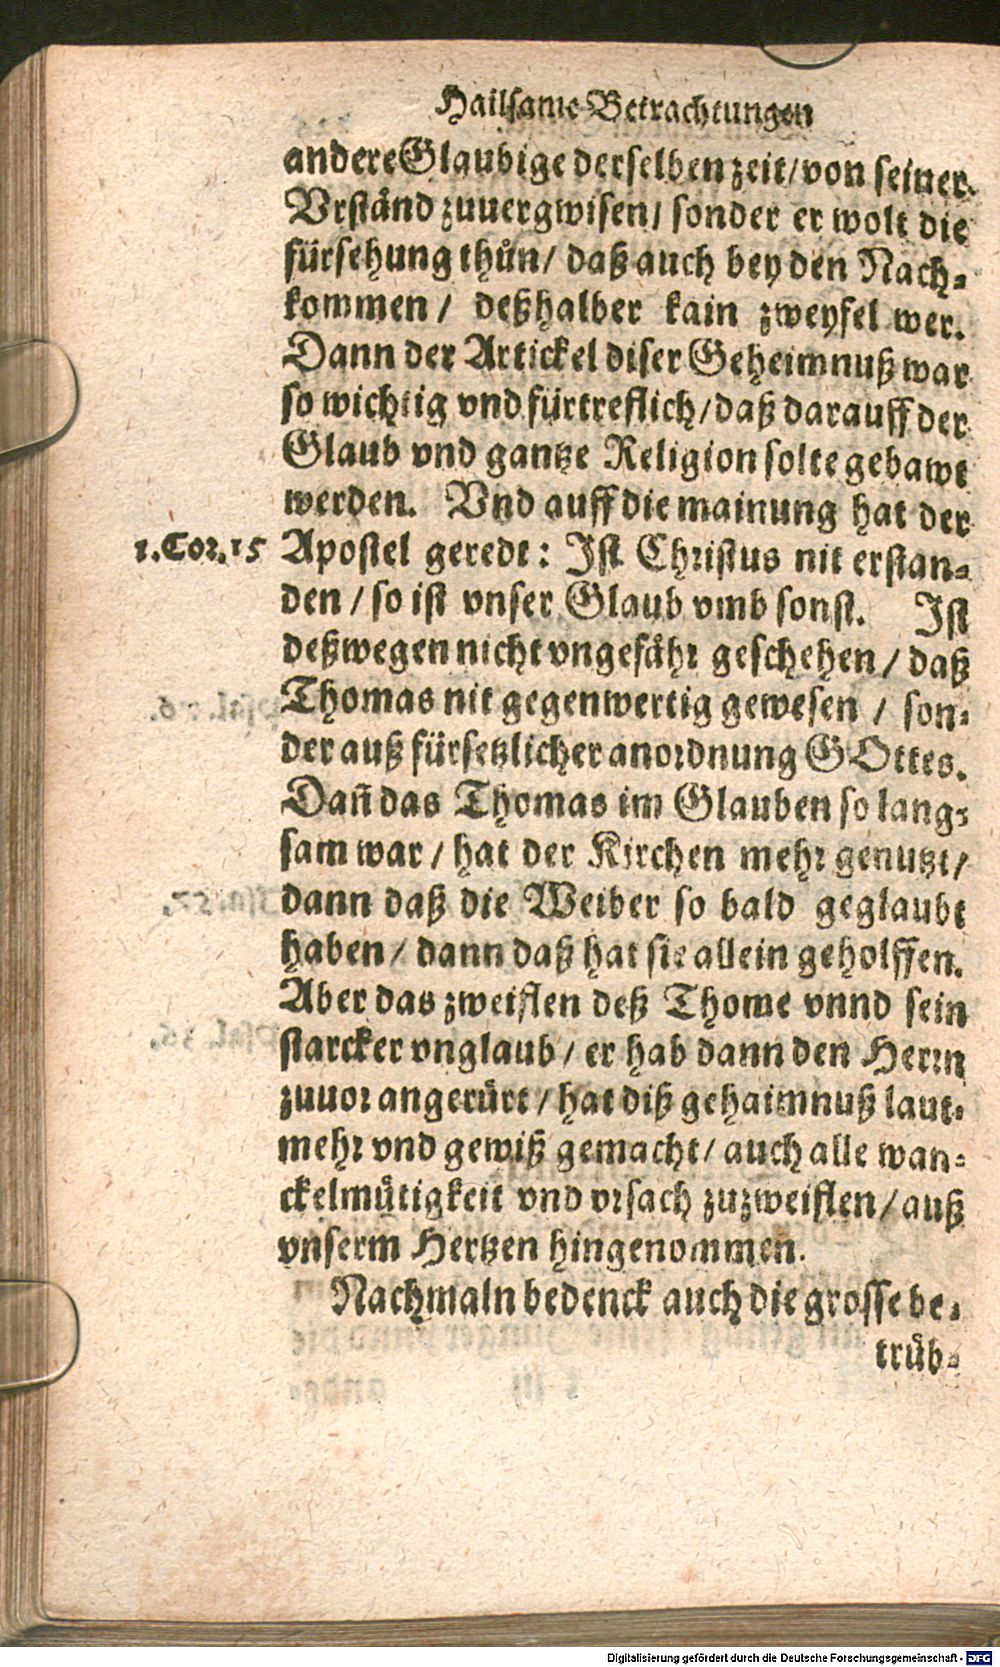 Hailsame Betrachtungen
andere Glaubige derselben zeit/ von seiner
Vrständ zuuergwisen/ sonder er wolt die
fürsehung thůn/ daß auch bey den Nach-
kommen/ deßhalber kain zweyfel wer.
Dann der Artickel diser Geheimnuß war
so wichtig vnd fürtreflich/ daß darauff der
Glaub vnd gantze Religion solte gebawt
werden. Vnd auff die mainung hat der
1.Cor.15 Apostel geredt: Ist Christus nit erstan-
den/ so ist vnser Glaub vmb sonst. Ist
deßwegen nicht vngefähr geschehen/ daß
Thomas nit gegenwertig gewesen/ son-
der auß fürsetzlicher anordnung GOttes.
Dañ das Thomas im Glauben so lang-
sam war/ hat der Kirchen mehr genutzt/
dann daß die Weiber so bald geglaubt
haben/ dann daß hat sie allein geholffen.
Aber das zweiflen deß Thome vnnd sein
starcker vnglaub/ er hab dann den Herrn
zuuor angerürt/ hat diß gehaimnuß laut-
mehr vnd gewiß gemacht/ auch alle wan-
ckelmütigkeit vnd vrsach zuzweiflen/ auß
vnserm Hertzen hingenommen.
Nachmaln bedenck auch die grosse be-
trüb-
Digitalisierung gefördert durch die Deutsche Forschungsgemeinschaft - DFG